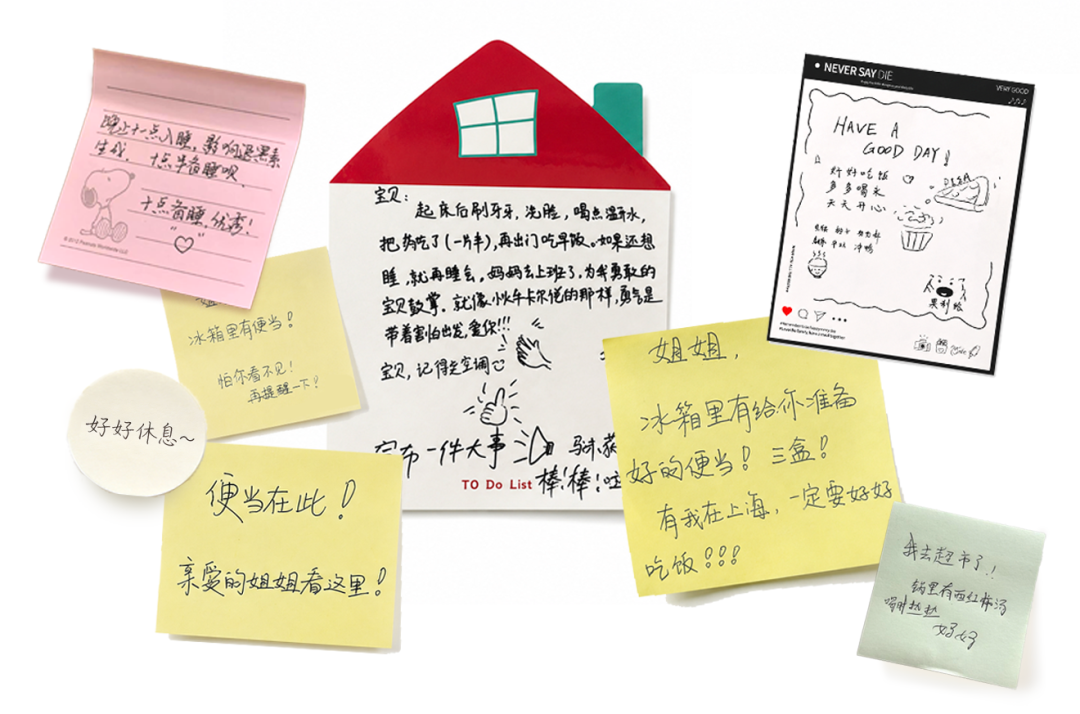 晚上十一点入睡，影响退黑素
生成，十点半备睡呗、
十点备睡，优秀！
冰箱里有便当！
怕你看不见！
再提醒一下！
好好休息～
便当在此！
亲爱的姐姐看这里！
宝贝：
起床后刷牙牙，洗脸，喝点温开水，
把药吃了（一片半），再出门吃早饭。如果还想
睡，就再睡会，妈妈去上班了，为我勇敢的
宝贝鼓掌。就像小火车卡尔说的那样，勇气是
带着害怕出发，爱你!!!
宝贝，记得关空调
宣布一件大事
棒！棒！哇
TO Do List
姐姐，
冰箱里有给你准备
好的便当！三盒！
有我在上海，一定要好好
吃饭！！！
NEVER SAY DIE
VERY GOOD
HAVE A
GOOD DAY!
好好吃饭
多多喝水
天天开心
我去超市了！！
锅里有西红柿汤
喝时热热
好好